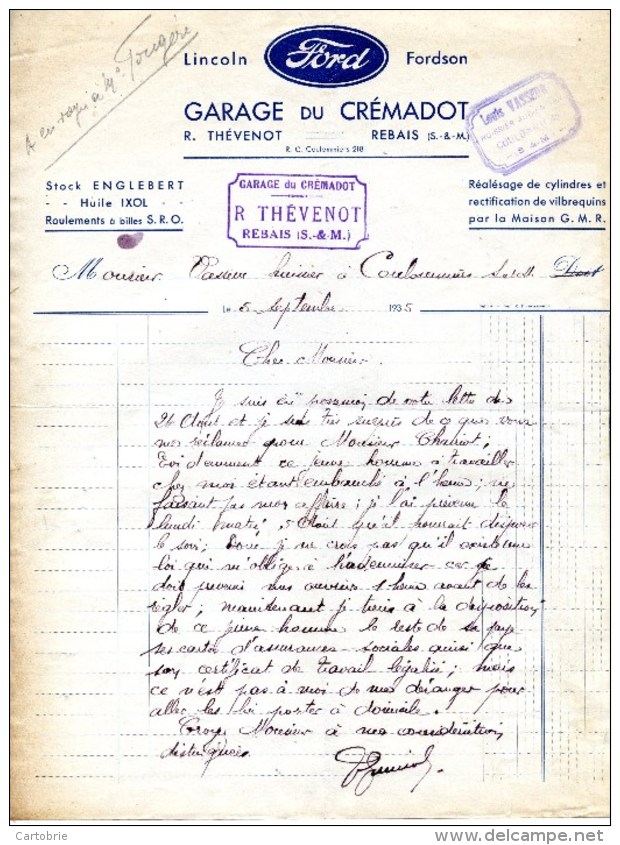 A envoyé à Me Fougère
Lincoln Ford Fordson
GARAGE DU CRÉMADOT
R. THÉVENOT REBAIS (S.-&M.)
R. C. Coulommiers 218
Louis VASSEUR
Stock ENGLEBERT
- - Huile IXOL - -
Roulements à billes S.R.O.
GARAGE du CRÉMADOT
R THÉVENOT
REBAIS (S.-&M.)
Réalésage de cylindres et
rectification de vilbrequins
par la Maison G. M. R.
Monsieur Vasseur huissier à Coulommiers S et M Doit
Le 5 Septembre 1935
Cher Monsieur
Je suis en possession de votre lettre du
26 Aout et je suis très surpris de ce que vous
me réclamer pour Monsieur Charriot;
Evidemment ce jeune homme à travailler
chez moi étant embauché à l'heure; ne
faisant pas mon affaire; je l'ai prévenu le
lundi matin 5 Aout qu'il pourrait disposer
le soir; Donc je ne crois pas qu'il existe une
loi qui m'oblige à l'indemniser car je
dois prevenir mes ouvriers 1 heure avant de les
régler; maintenant je tiens à la disposition
de ce jeune homme le reste de sa paye
ses cartes d'assurances sociales ainsi que
son certificat de travail légalisé; mais
ce n'est pas à moi de me déranger pour
aller les lui porter à domicile.
Croyez Monsieur à mes considérations
distinguées
Cartobrie
www.delcampe.net